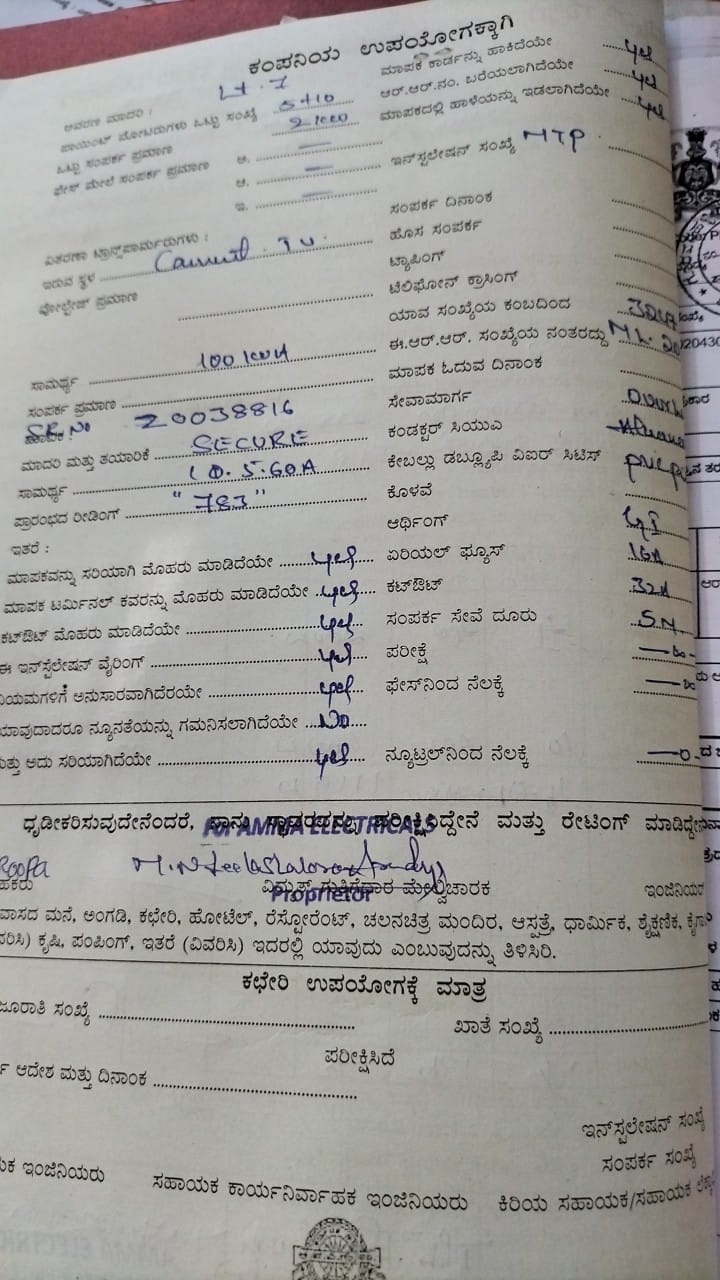 ಕಂಪನಿಯ ಉಪಯೋಗಕ್ಕಾಗಿ
ಮಾಪಕ ಕಾರ್ಡನ್ನು ಹಾಕಿದೆಯೇ yes
ಆವರಣ ಮಾದರಿ :
ಆರ್.ಆರ್.ನಂ. ಬರೆಯಲಾಗಿದೆಯೇ yes
ಪಾಯಿಂಟ್ ಮೋಟರುಗಳು ಒಟ್ಟು ಸಂಖ್ಯೆ 5+10
ಮಾಪಕದಲ್ಲಿ ಹಾಳೆಯನ್ನು ಇಡಲಾಗಿದೆಯೇ yes
ಒಟ್ಟು ಸಂಪರ್ಕ ಪ್ರಮಾಣ
ಫೇಸ್ ಮೇಲೆ ಸಂಪರ್ಕ ಪ್ರಮಾಣ ಅ.
ಇನ್‌ಸ್ಟಲೇಷನ್ ಸಂಖ್ಯೆ MTP
ಆ.
ಇ.
ಸಂಪರ್ಕ ದಿನಾಂಕ
ವಿತರಣಾ ಟ್ರಾನ್ಸ್‌ಫಾರ್ಮರುಗಳು :
ಹೊಸ ಸಂಪರ್ಕ
ಇರುವ ಸ್ಥಳ
ಟ್ಯಾಪಿಂಗ್
ವೋಲ್ಟೇಜ್ ಪ್ರಮಾಣ
ಟೆಲಿಫೋನ್ ಕ್ರಾಸಿಂಗ್
ಯಾವ ಸಂಖ್ಯೆಯ ಕಂಬದಿಂದ
ಸಾಮರ್ಥ್ಯ 100 KVA
ಈ.ಆರ್.ಆರ್. ಸಂಖ್ಯೆಯ ನಂತರದ್ದು
ಸಂಪರ್ಕ ಪ್ರಮಾಣ
ಮಾಪಕ ಓದುವ ದಿನಾಂಕ
SR.No 20038816
ಸೇವಾಮಾರ್ಗ
ಮಾದರಿ ಮತ್ತು ತಯಾರಿಕೆ SECURE
ಕಂಡಕ್ಟರ್ ಸಿಯುವಿ
ಸಾಮರ್ಥ್ಯ 10.5.60A
ಕೇಬಲ್ಲು ಡಬ್ಲ್ಯೂಪಿ ವಿಐರ್ ಸಿಟಿಸ್
ಪ್ರಾರಂಭದ ರೀಡಿಂಗ್ "783"
ಕೊಳವೆ
ಇತರೆ :
ಆರ್ಥಿಂಗ್ GI
ಮಾಪಕವನ್ನು ಸರಿಯಾಗಿ ಮೊಹರು ಮಾಡಿದೆಯೇ yes
ಏರಿಯಲ್ ಫ್ಯೂಸ್ 16A
ಮಾಪಕ ಟರ್ಮಿನಲ್ ಕವರನ್ನು ಮೊಹರು ಮಾಡಿದೆಯೇ yes
ಕಟ್‌ಔಟ್ 32A
ಕಟ್‌ಔಟ್ ಮೊಹರು ಮಾಡಿದೆಯೇ yes
ಸಂಪರ್ಕ ಸೇವೆ ದೂರು 5M
ಈ ಇನ್‌ಸ್ಟಲೇಷನ್ ವೈರಿಂಗ್ yes
ಪರೀಕ್ಷೆ
ನಿಯಮಗಳಿಗೆ ಅನುಸಾರವಾಗಿದೆರಯೇ yes
ಫೇಸ್‌ನಿಂದ ನೆಲಕ್ಕೆ
ಯಾವುದಾದರೂ ನ್ಯೂನತೆಯನ್ನು ಗಮನಿಸಲಾಗಿದೆಯೇ No
ಮತ್ತು ಅದು ಸರಿಯಾಗಿದೆಯೇ yes
ನ್ಯೂಟ್ರಲ್‌ನಿಂದ ನೆಲಕ್ಕೆ
ಧೃಡೀಕರಿಸುವುದೇನೆಂದರೆ, ನಾನು ಪರೀಕ್ಷಿಸಿದ್ದೇನೆ ಮತ್ತು ರೇಟಿಂಗ್ ಮಾಡಿದ್ದೇನೆ
For AMINA ELECTRICALS
ವಿದ್ಯುತ್ ಗುತ್ತಿಗೆದಾರ ಮೇಲ್ವಿಚಾರಕ
ಇಂಜಿನಿಯರ್
Proprietor
ವಾಸದ ಮನೆ, ಅಂಗಡಿ, ಕಛೇರಿ, ಹೋಟೆಲ್, ರೆಸ್ಟೋರೆಂಟ್, ಚಲನಚಿತ್ರ ಮಂದಿರ, ಆಸ್ಪತ್ರೆ, ಧಾರ್ಮಿಕ, ಶೈಕ್ಷಣಿಕ,
ಕೃಷಿ, ಪಂಪಿಂಗ್, ಇತರೆ (ವಿವರಿಸಿ) ಇದರಲ್ಲಿ ಯಾವುದು ಎಂಬುವುದನ್ನು ತಿಳಿಸಿರಿ.
ಕಛೇರಿ ಉಪಯೋಗಕ್ಕೆ ಮಾತ್ರ
ಜೂರಾತಿ ಸಂಖ್ಯೆ
ಖಾತೆ ಸಂಖ್ಯೆ
ಪರೀಕ್ಷಿಸಿದೆ
ಆದೇಶ ಮತ್ತು ದಿನಾಂಕ
ಇನ್‌ಸ್ಪಲೇಷನ್ ಸಂಖ್ಯೆ
ಸಂಪರ್ಕ ಸಂಖ್ಯೆ
ಇಂಜಿನಿಯರು
ಸಹಾಯಕ ಕಾರ್ಯನಿರ್ವಾಹಕ ಇಂಜಿನಿಯರು
ಕಿರಿಯ ಸಹಾಯಕ/ಸಹಾಯಕ